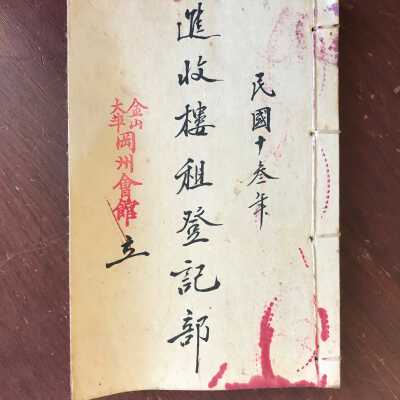 民國十叁年
進收樓租登記部
金山
大埠
岡州會館
立